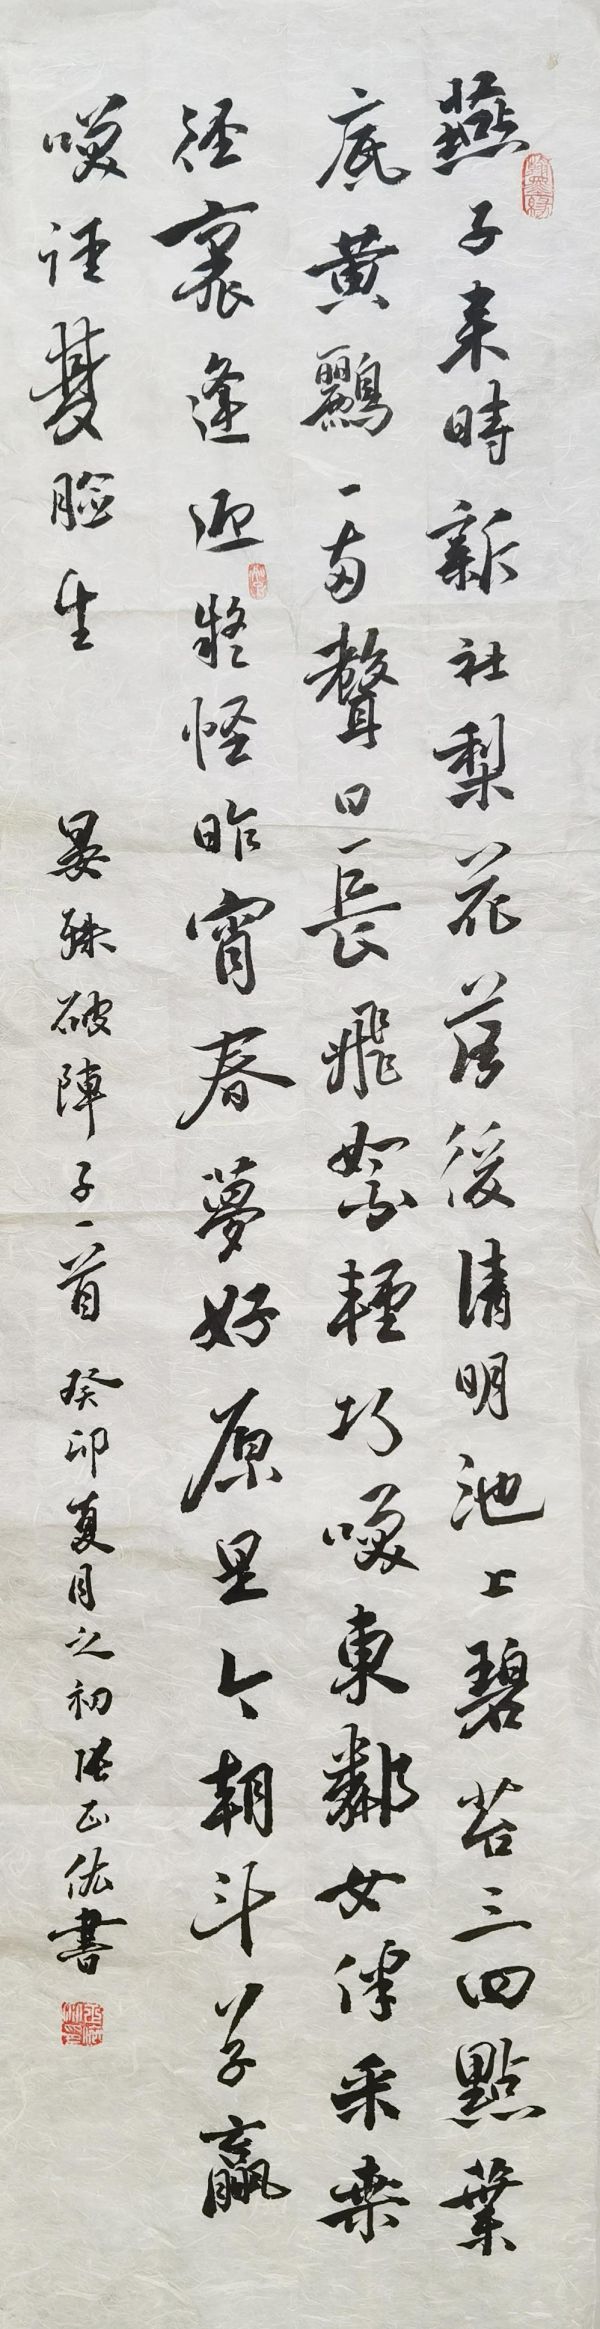 燕子来時新社梨花落後清明池上碧苔三四點葉
底黄鸝一兩聲日長飛絮輕巧咲東鄰女伴采桑
徑裏逢迎疑怪昨宵春夢好原是今朝斗草贏
咲從雙臉生
晏殊破陣子一首 癸卯夏月之初張正佑書